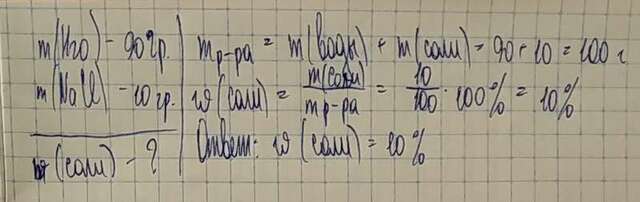 m(H2O) - 90 гр.
m(NaCl) - 10 гр.
w(соли) - ?
mр-ра = m(воды) + m(соли) = 90 + 10 = 100 г
w(соли) = m(соли) / mр-ра = 10 / 100 · 100% = 10%
Ответ: w(соли) = 10%